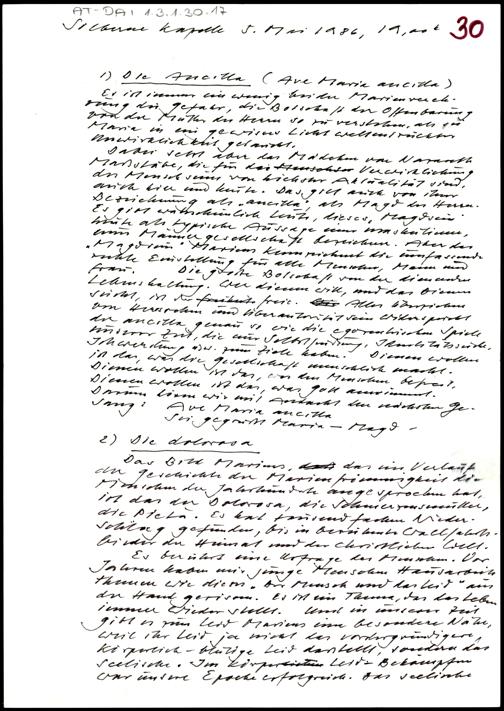 AT-DAI 1.3.1.30.17
Silberne Kapelle 5. Mai 1986, 19,00h 30
1) Die Ancilla (Ave Maria ancilla)
Es ist immer ein wenig bei der Marienvereh-
rung die Gefahr, die Botschaft der Offenbarung
von der Mutter des Herrn so zu verstehen, als ob
Maria in ein gewisses Licht weltentrückter
Unwirklichkeit gelangt.
Dabei setzt aber das Mädchen von Nazareth
Maßstäbe, die für die Verwirklichung
des Menschseins von höchster Aktualität sind,
auch hier und heute. Das gilt auch von ihrer
Bezeichnung als "ancilla", als Magd des Herrn.
Es gibt wahrscheinlich Leute, die dieses "Magdsein"
heute als typische Aussage einer maskulinen,
einer Männergesellschaft bezeichnen. Aber das
"Magdsein" Mariens kennzeichnet die umfassende
rechte Einstellung für alle Menschen, Mann und
Frau. Die große Botschaft von der dienenden
Lebenshaltung. Wer dienen will, und das Dienen
sucht, ist der freie. Alles
von Herrschen und ist im Widerspruch
der ancilla genau so wie die egozentrischen Spiele
unserer Zeit, die nur Selbstfindung, Identitätssuche,
Ichwerdung usw. zum Ziele haben. Dienen wollen
ist das, was die Gesellschaft menschlich macht.
Dienen wollen ist das, was den Menschen befreit,
Dienen wollen ist das, was Gott annimmt.
Darum hören wir mit Andacht den nächsten Ge-
sang: Ave Maria ancilla
Sei gegrüßt Maria - Magd -
2) Die dolorosa
Das Bild Mariens, das im Verlauf
der Geschichte der Marienfrömmigkeit die
Menschen der Jahrhunderte angesprochen hat,
ist das der Dolorosa, die Schmerzensmutter,
die Pietà. Es hat tausendfachen Nieder-
schlag gefunden, bis in berühmte Wallfahrts-
bilder der Heimat und der christlichen Welt.
Es berührt eine Urfrage des Menschen. Vor
Jahren haben mir junge Menschen Hausarbeits-
themen wie dieses "Der Mensch und das Leid" aus
der Hand gerissen. Es ist ein Thema, das das Leben
immer wieder stellt. Und in unserer Zeit
gibt es zum Leid Mariens eine besondere Nähe,
weil ihr Leid ja nicht das vordergründigere,
körperlich-blutige Leid darstellt, sondern das
seelische. Im Leid-Bekämpfen
war unsere Epoche erfolgreich. Das seelische